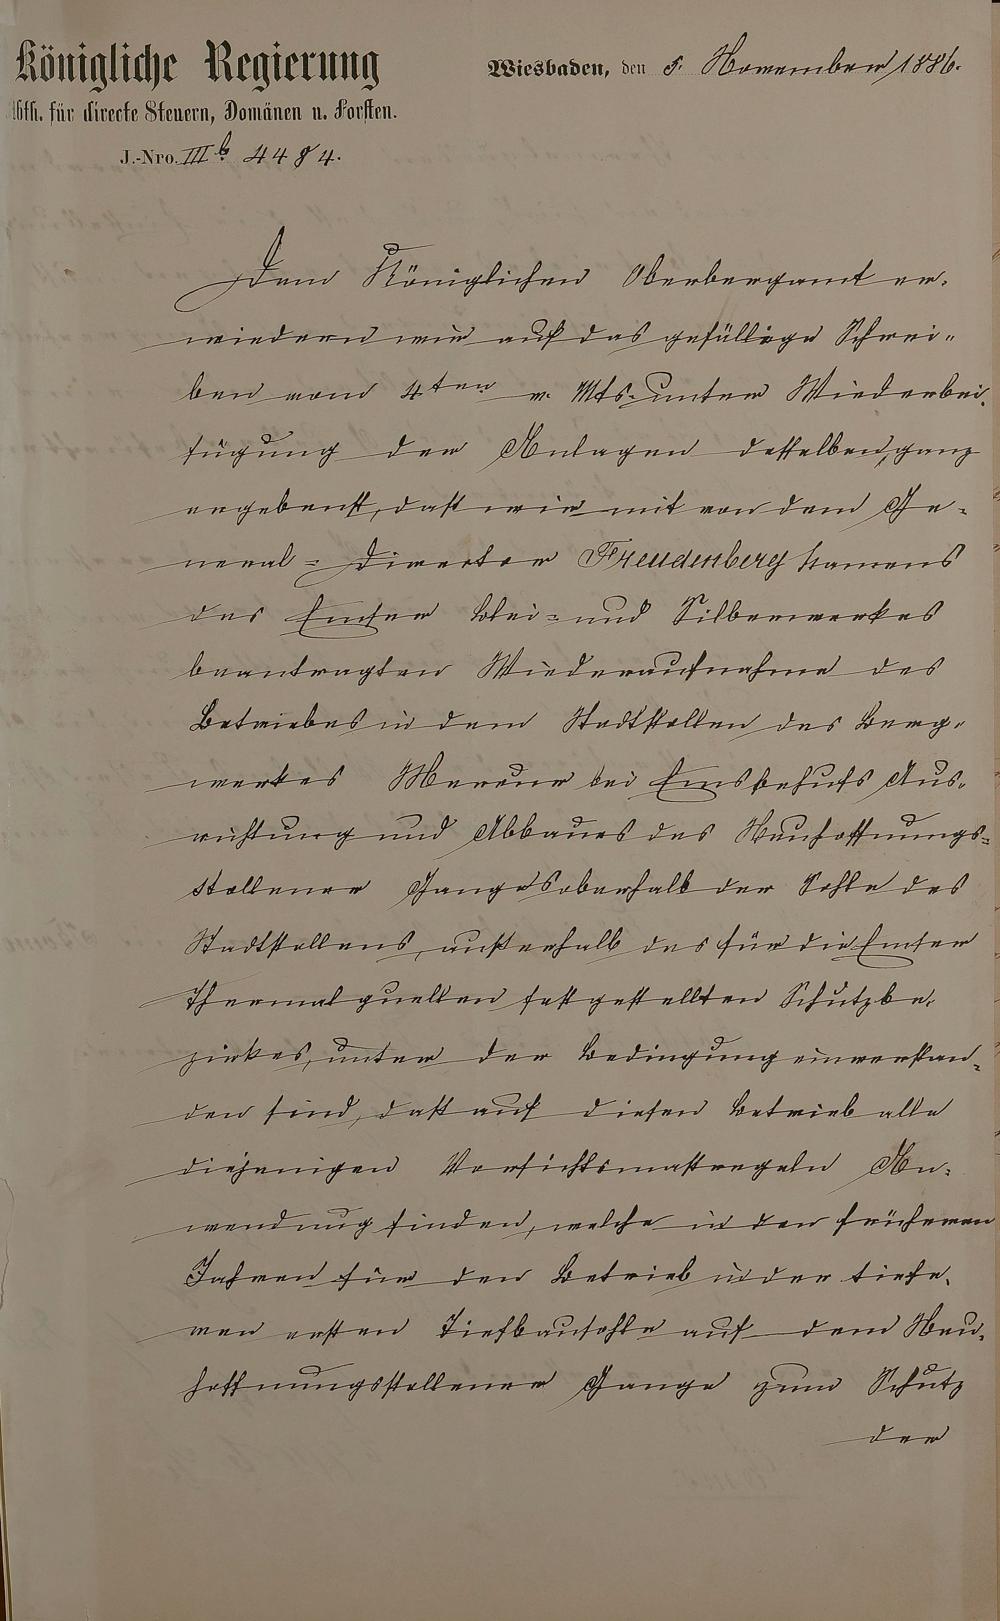 Königliche Regierung
Abth. für directe Steuern, Domänen u. Forsten.
J.-Nro. IIIb 4484.
Wiesbaden, den 5. November 1886.
Dem Königlichen Oberbergamt er-
wiedern wir auf das gefällige Schrei-
ben vom 4ten v. Mts. unter Wiederbei-
fügung der Anlagen desselben, ganz
ergebenst, daß wir mit von dem Ge-
neral-Director Freudenberg Namens
des Emser Blei- und Silberwerkes
beantragten Wiederaufnahme des
Betriebes in dem Stadtstollen des Berg-
werkes Mercur bei Ems behufs Aus-
richtung und Abbaues des Neuhoffnungs-
stollener Ganges oberhalb der Sohle des
Stadtstollens, außerhalb des für die Emser
Thermalquellen festgestellten Schutzbe-
zirkes, unter der Bedingung einverstan-
den sind, daß auf diesen Betrieb alle
diejenigen Vorsichtsmaßregeln An-
wendung finden, welche in den früheren
Jahren für den Betrieb in der tiefe-
ren ersten Tiefbausohle auf dem Neu-
hoffnungsstollener Gange zum Schutz
der